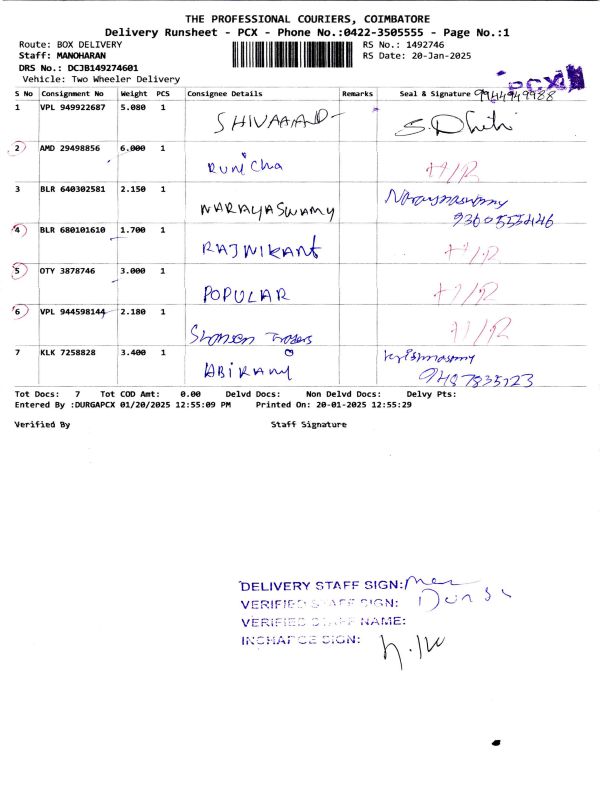 THE PROFESSIONAL COURIERS, COIMBATORE
Delivery Runsheet - PCX - Phone No.:0422-3505555 - Page No.:1
Route: BOX DELIVERY RS No.: 1492746
Staff: MANOHARAN RS Date: 20-Jan-2025
DRS No.: DCJB149274601
Vehicle: Two Wheeler Delivery
PCX
S No Consignment No Weight PCS Consignee Details Remarks Seal & Signature 9944949988
1 VPL 949922687 5.080 1 SHIVAAAND S.Dhiti
2 AMD 29498856 6.000 1 Runicha
3 BLR 640302581 2.150 1 NARAYASWAMY Narayanaswamy
9360555446
4 BLR 680101610 1.700 1 RAJNIKANT
5 OTY 3878746 3.000 1 POPULAR
6 VPL 944598144 2.180 1
7 KLK 7258828 3.400 1 ABIRAMY Krishnasamy
9487835123
Tot Docs: 7 Tot COD Amt: 0.00 Delvd Docs: Non Delvd Docs: Delvy Pts:
Entered By :DURGAPCX 01/20/2025 12:55:09 PM Printed On: 20-01-2025 12:55:29
Verified By Staff Signature
DELIVERY STAFF SIGN:
VERIFIED STAFF SIGN:
VERIFIED STAFF NAME:
INCHARGE SIGN: